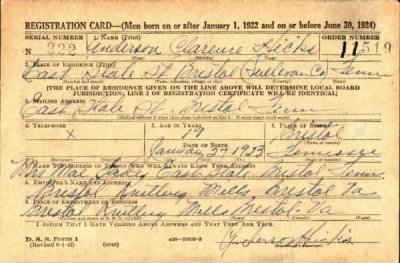 REGISTRATION CARD—(Men born on or after January 1, 1922 and on or before June 30, 1924)
SERIAL NUMBER 1. NAME (Print) ORDER NUMBER
N 222 Anderson Clarence Hicks 11519
(First) (Middle) (Last)
2. PLACE OF RESIDENCE (Print)
East State St Bristol Sullivan Co Tenn
[THE PLACE OF RESIDENCE GIVEN ON THE LINE ABOVE WILL DETERMINE LOCAL BOARD
JURISDICTION; LINE 2 OF REGISTRATION CERTIFICATE WILL BE IDENTICAL]
3. MAILING ADDRESS
East State St. Bristol Tenn
4. TELEPHONE 5. AGE IN YEARS 6. PLACE OF BIRTH
X 19 Bristol
DATE OF BIRTH
January 27 1923 Tennessee
7. NAME AND ADDRESS OF PERSON WHO WILL ALWAYS KNOW YOUR ADDRESS
Mrs Mae East State Bristol Tenn
8. EMPLOYER'S NAME AND ADDRESS
Bristol Knitting Mills, Bristol Va
9. PLACE OF EMPLOYMENT OR BUSINESS
Bristol Knitting Mills Bristol Va
I AFFIRM THAT I HAVE VERIFIED ABOVE ANSWERS AND THAT THEY ARE TRUE.
D. S. S. FORM 1
(Revised 6-9-42) (over)
Hicks